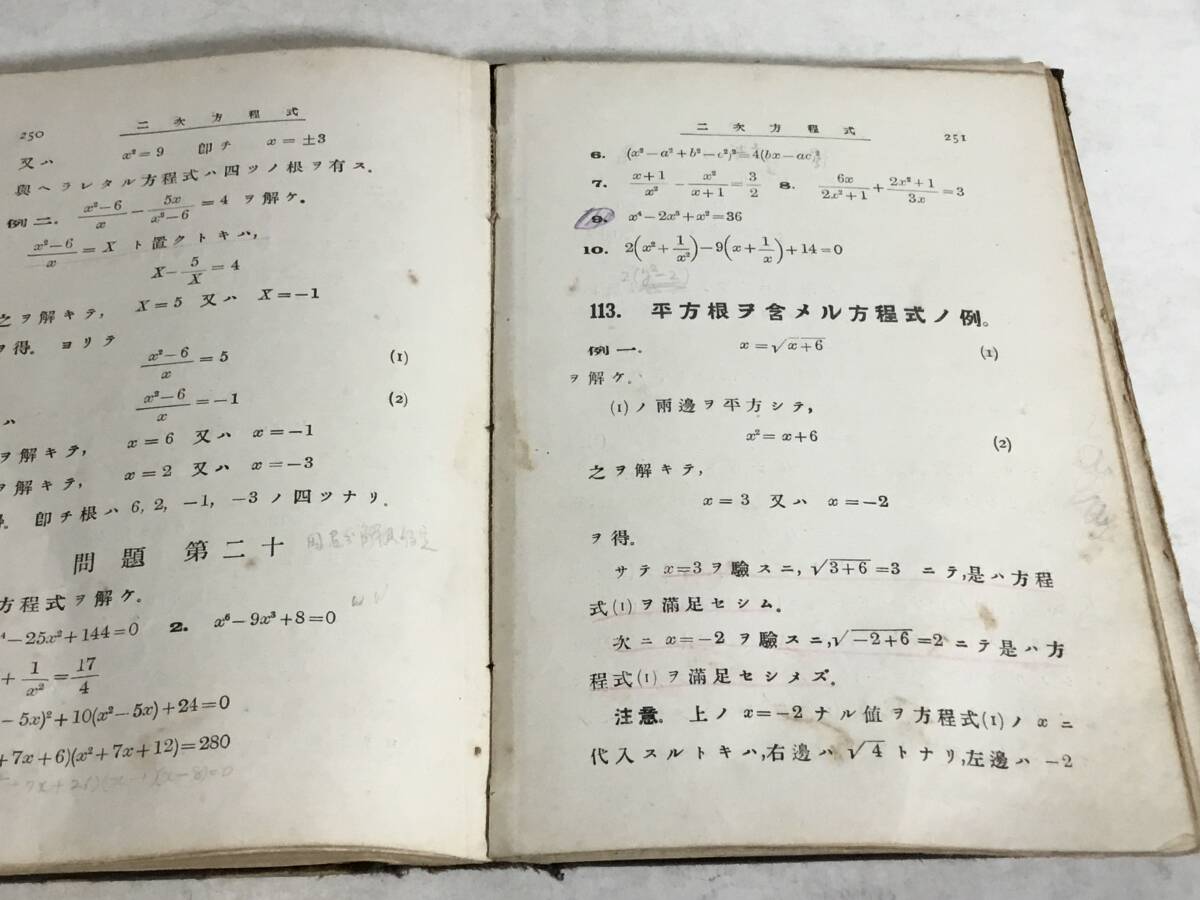 250 二次方程式
又ハ x²=9 卽チ x=±3
與ヘラレタル方程式ハ四ツノ根ヲ有ス.
例二. (x²−6)/x − 5x/(x²−6) = 4 ヲ解ケ.
(x²−6)/x = X ト置クトキハ,
X − 5/X = 4
之ヲ解キテ, X=5 又ハ X=−1
ヲ得。 ヨリテ
(x²−6)/x = 5 (1)
(x²−6)/x = −1 (2)
ハ
ヲ解キテ, x=6 又ハ x=−1
ヲ解キテ, x=2 又ハ x=−3
卽チ根ハ 6, 2, −1, −3 ノ四ツナリ.
問題 第二十
方程式ヲ解ケ。
−25x²+144=0 2. x⁶−9x³+8=0
+ 1/x² = 17/4
−5x)²+10(x²−5x)+24=0
+7x+6)(x²+7x+12)=280
二次方程式 251
6. (x²−a²+b²−c²)²=4(bx−ac)²
7. (x+1)/x² − x²/(x+1) = 3/2 8. 6x/(2x²+1) + (2x²+1)/3x = 3
9. x⁴−2x³+x²=36
10. 2(x²+1/x²)−9(x+1/x)+14=0
2(y²−2)
113. 平方根ヲ含メル方程式ノ例。
例一. x=√(x+6) (1)
ヲ解ケ.
(1)ノ兩邊ヲ平方シテ,
x²=x+6 (2)
之ヲ解キテ,
x=3 又ハ x=−2
ヲ得。
サテ x=3 ヲ驗スニ, √(3+6)=3 ニテ,是ハ方程
式(1)ヲ滿足セシム。
次ニ x=−2 ヲ驗スニ,√(−2+6)=2 ニテ是ハ方
程式(1)ヲ滿足セシメズ。
注意。 上ノ x=−2 ナル値ヲ方程式(1)ノ x ニ
代入スルトキハ,右邊ハ √4 トナリ,左邊ハ −2